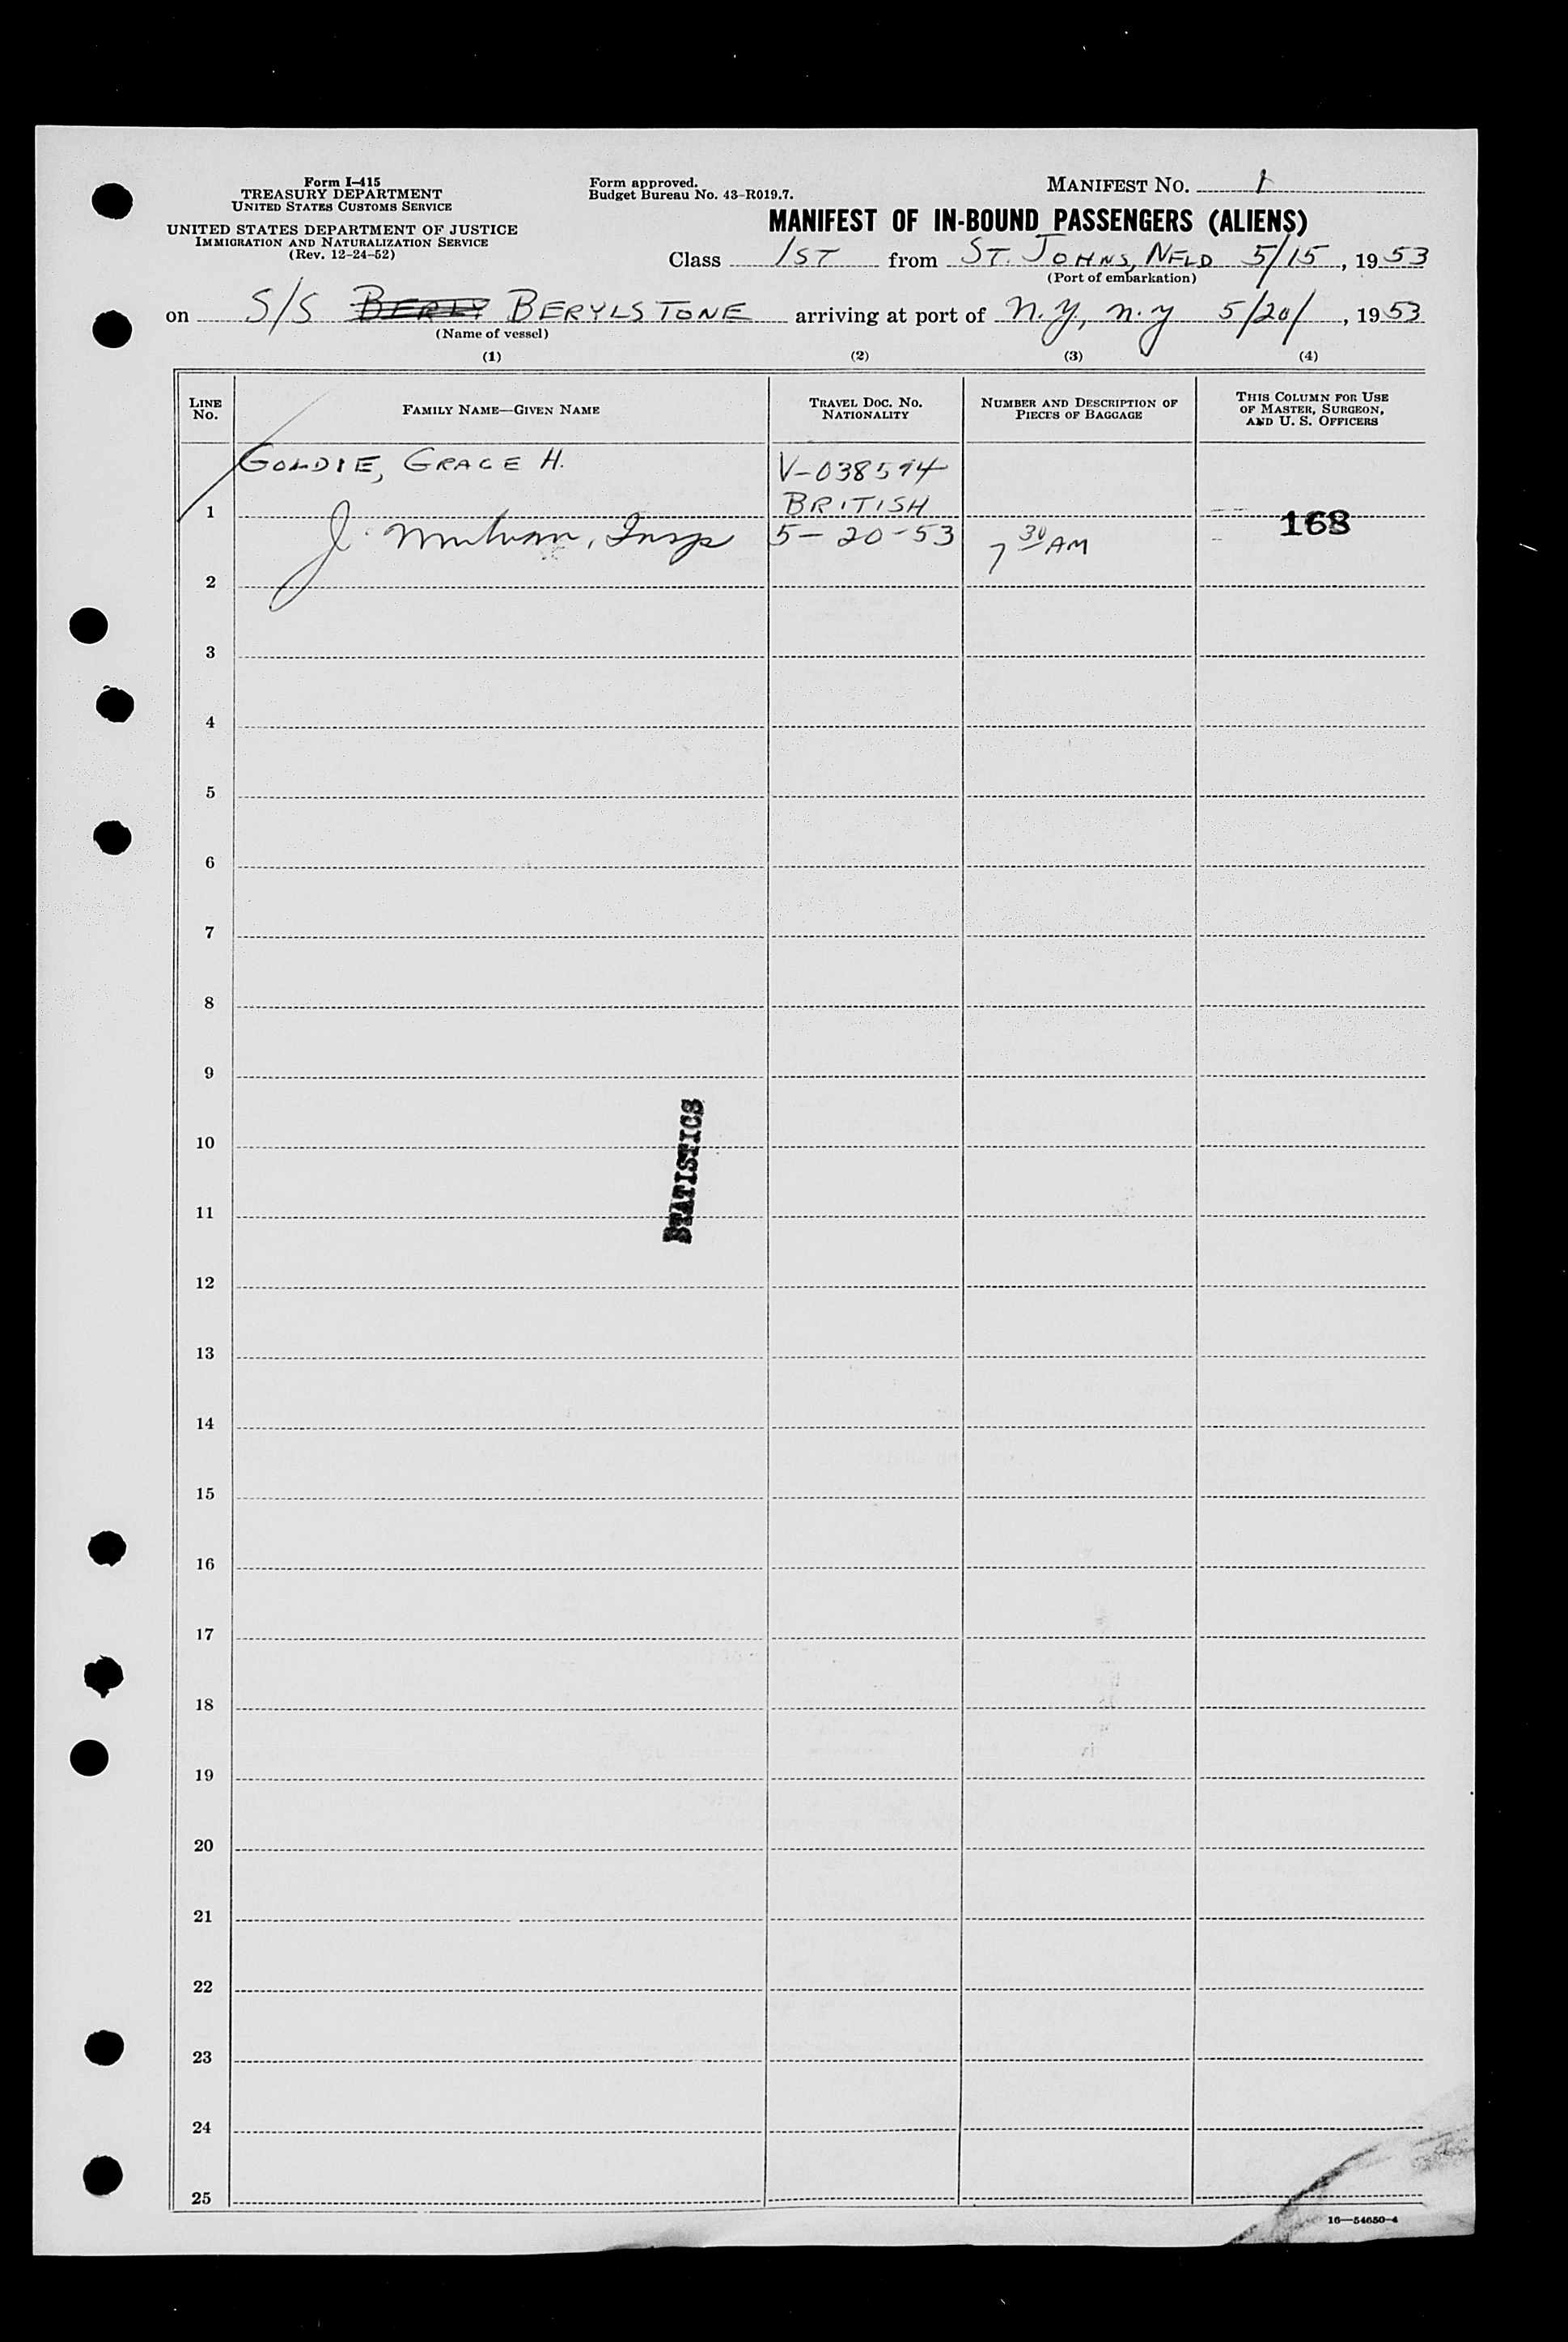 Form I-415
TREASURY DEPARTMENT
UNITED STATES CUSTOMS SERVICE
UNITED STATES DEPARTMENT OF JUSTICE
IMMIGRATION AND NATURALIZATION SERVICE
(Rev. 12-24-52)
Form approved.
Budget Bureau No. 43-R019.7.
MANIFEST NO. 1
MANIFEST OF IN-BOUND PASSENGERS (ALIENS)
Class 1ST from ST. JOHNS, NFLD 5/15, 1953
(Port of embarkation)
on S/S BERYLSTONE arriving at port of N.Y, N.Y 5/20/, 1953
(Name of vessel)
(1) (2) (3) (4)
LINE NO. FAMILY NAME—GIVEN NAME TRAVEL DOC. NO. NATIONALITY NUMBER AND DESCRIPTION OF PIECES OF BAGGAGE THIS COLUMN FOR USE OF MASTER, SURGEON, AND U. S. OFFICERS
GOLDIE, GRACE H. V-038594
1 BRITISH 168
J. Insp 5-20-53 7 30 AM
2
3
4
5
6
7
8
9
10
STATISTICS
11
12
13
14
15
16
17
18
19
20
21
22
23
24
25
16—54650-4